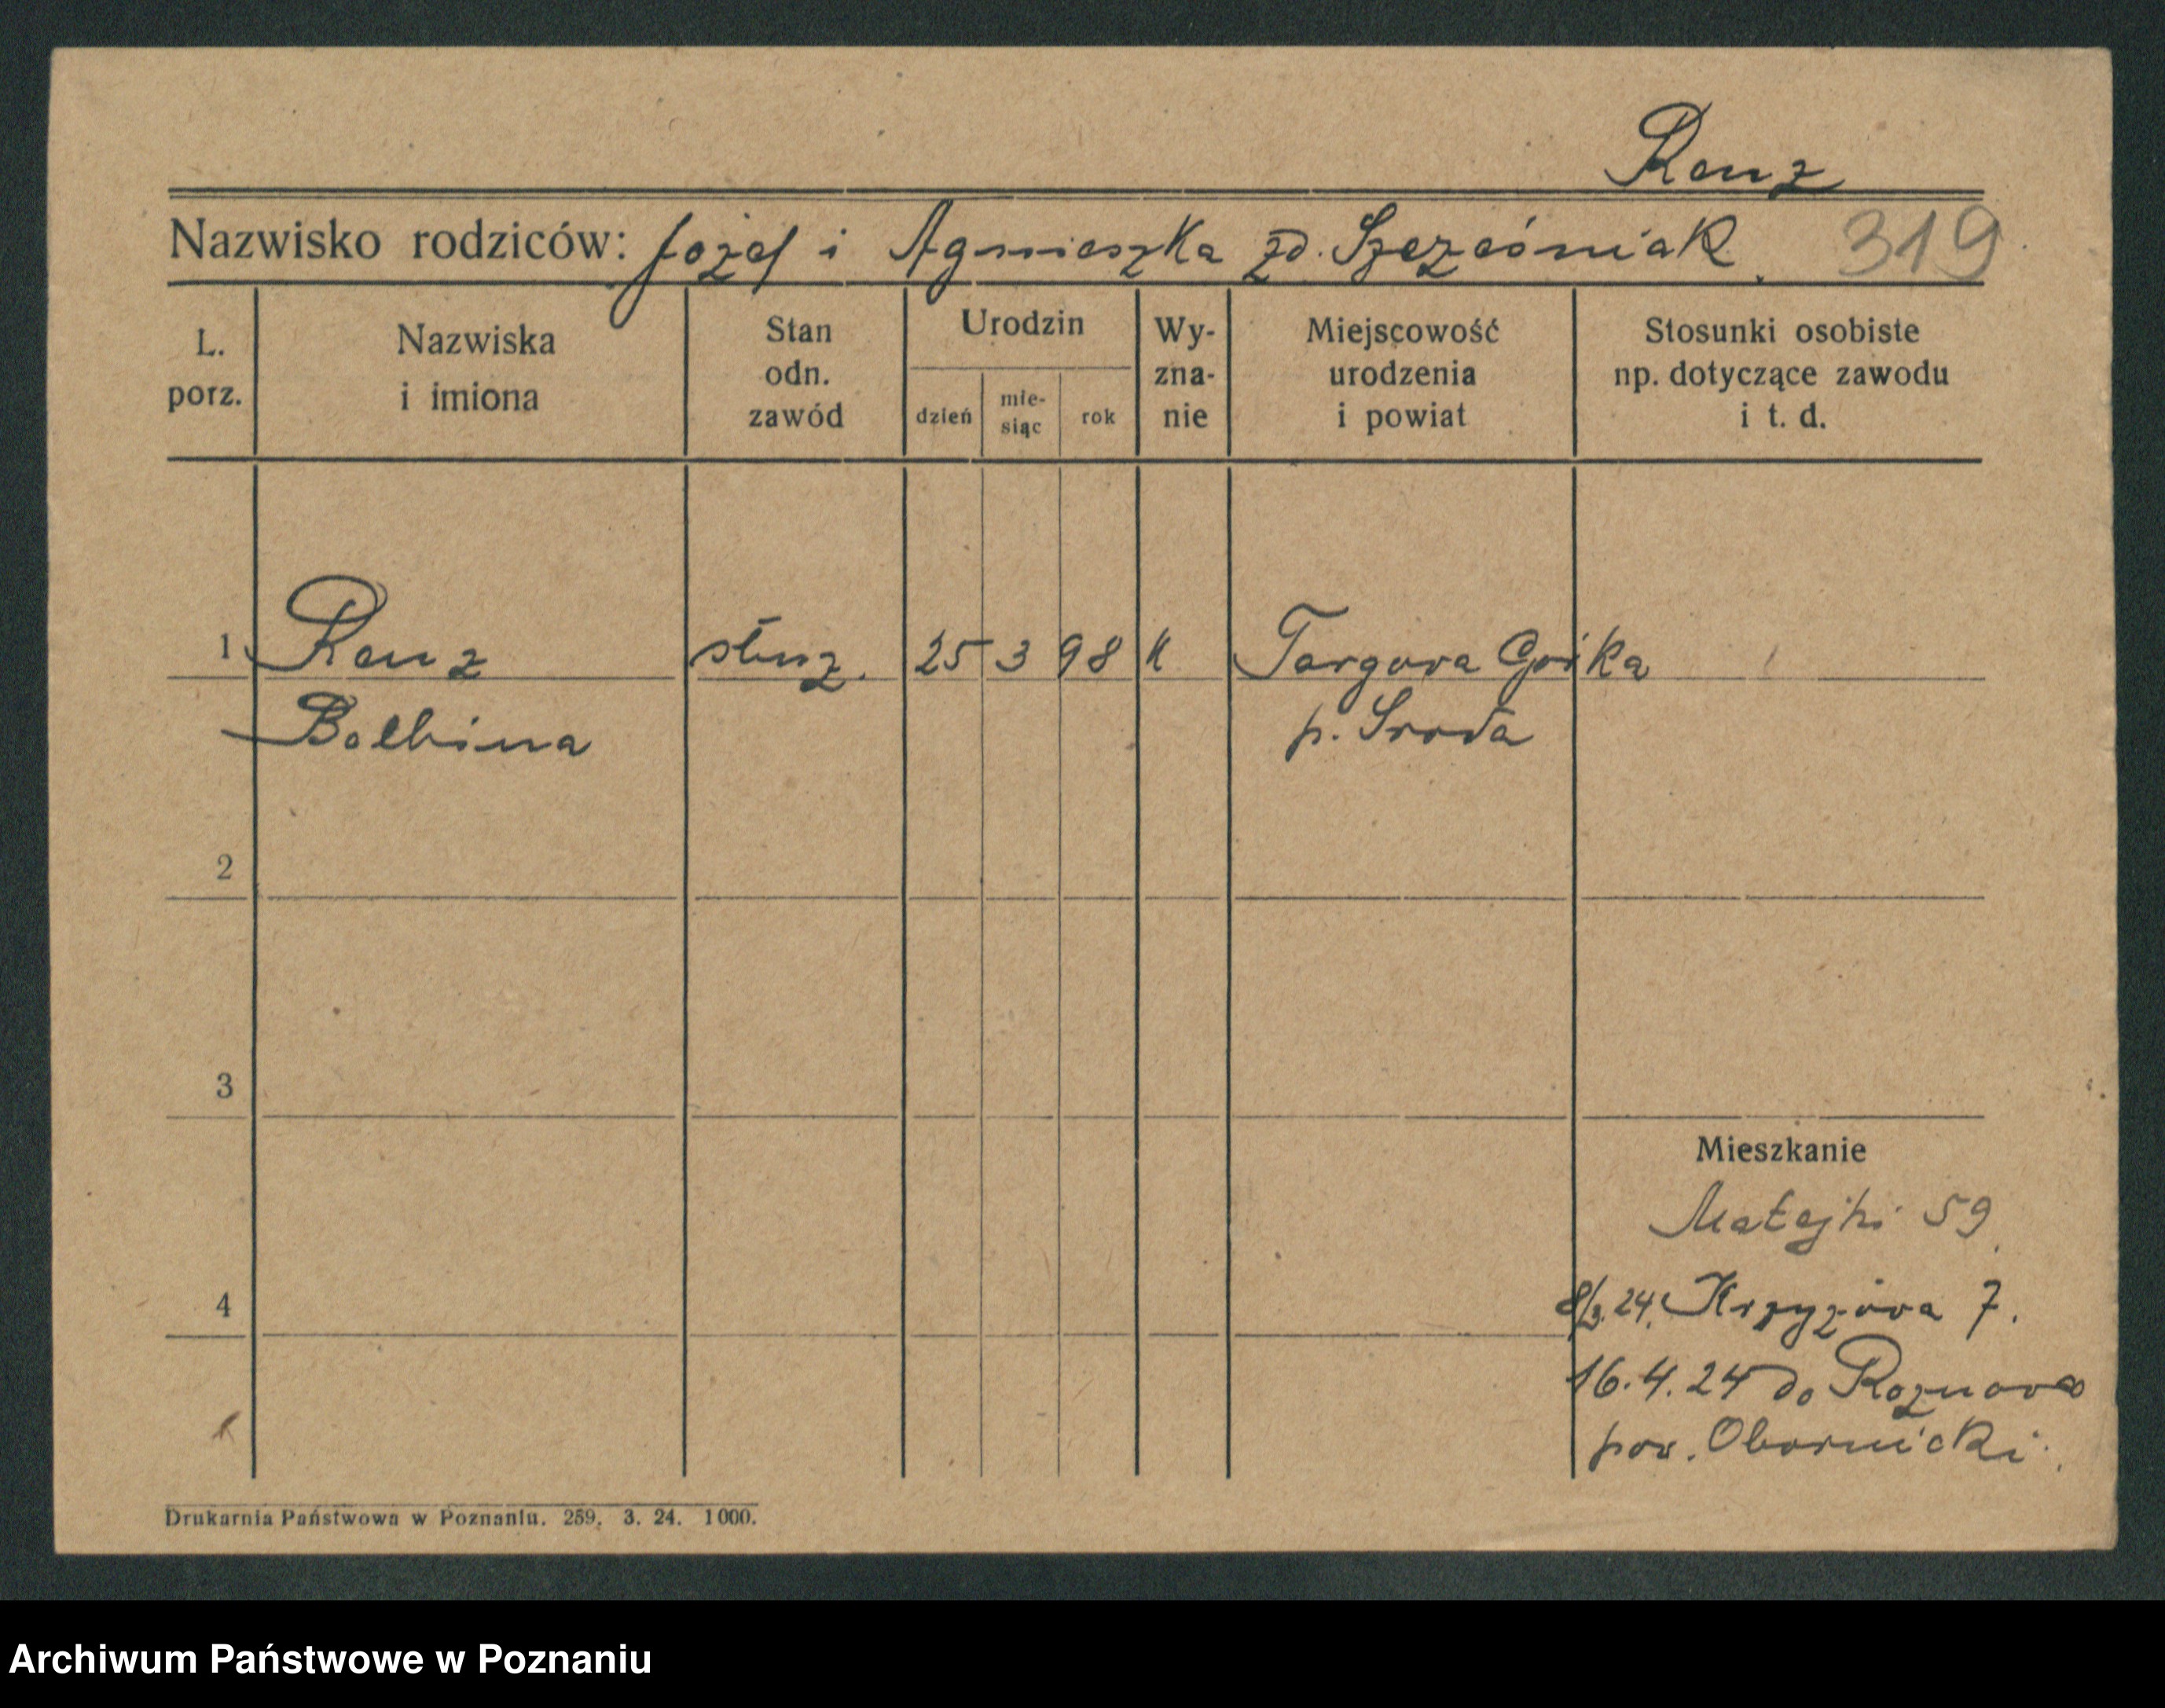 Renz
Nazwisko rodziców: Józef i Agnieszka zd. Szcześniak. 319
L. porz.
Nazwiska i imiona
Stan odn. zawód
Urodzin
dzień
mie-
siąc
rok
Wy-
zna-
nie
Miejscowość urodzenia i powiat
Stosunki osobiste np. dotyczące zawodu i t. d.
1 Renz służ. 25 3 98 K Targowa Górka
Balbina p. Środa
2
3
Mieszkanie
Matejki 59
4
8/3.24. Krzyżowa 7.
16.4.24 do Rożnowa
pow. Obornicki.
Drukarnia Państwowa w Poznaniu. 259. 3. 24. 1000.
Archiwum Państwowe w Poznaniu